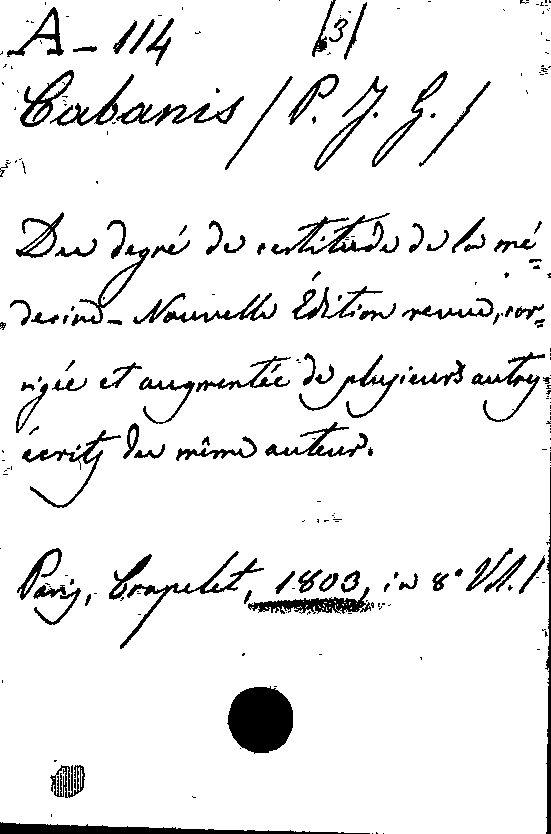 A - 114 /3/
Cabanis / P. J. G. /
Du degré de certitude de la mé=
decine - Nouvelle Édition revue, cor=
rigée et augmentée de plusieurs autres
écrits du même auteur.
Paris, Crapelet, 1803, in 8° Vol. 1